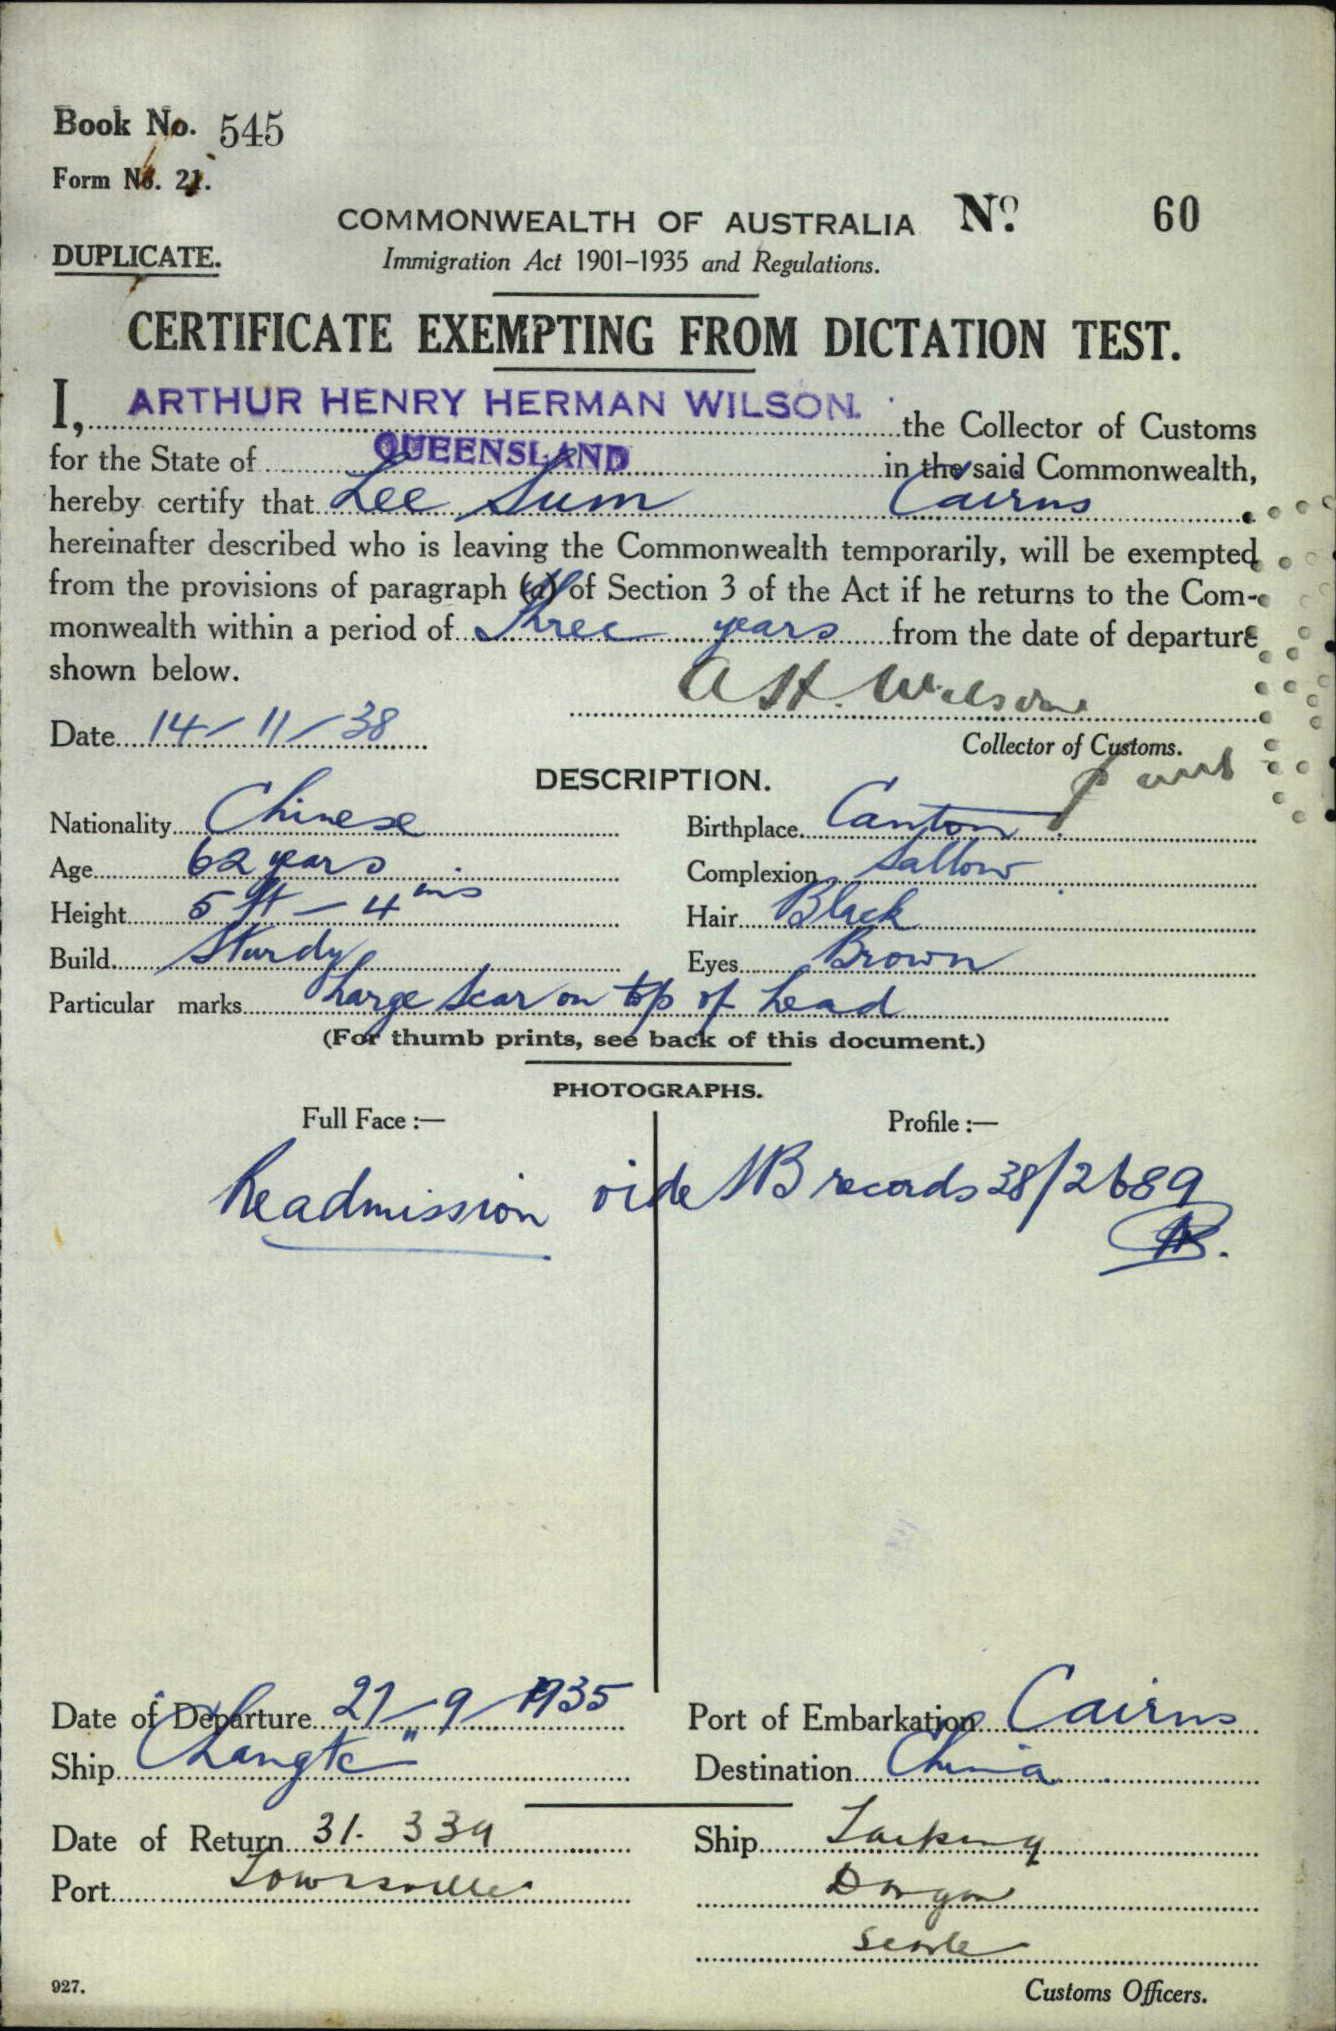 Book No. 545
Form No. 21.
COMMONWEALTH OF AUSTRALIA No. 60
DUPLICATE.
Immigration Act 1901-1935 and Regulations.
CERTIFICATE EXEMPTING FROM DICTATION TEST.
I, ARTHUR HENRY HERMAN WILSON. the Collector of Customs
for the State of QUEENSLAND in the said Commonwealth,
hereby certify that Lee Sum Cairns
hereinafter described who is leaving the Commonwealth temporarily, will be exempted
from the provisions of paragraph (a) of Section 3 of the Act if he returns to the Com-
monwealth within a period of Three years from the date of departure
shown below.
A H. Wilson
Date 14/11/38
Collector of Customs.
DESCRIPTION.
Nationality Chinese Birthplace Canton
Age 62 years Complexion Sallow
Height 5 ft - 4 ins Hair Black
Build Sturdy Eyes Brown
Particular marks Large scar on top of head
(For thumb prints, see back of this document.)
PHOTOGRAPHS.
Full Face :— Profile :—
Readmission vide records 38/2689
Date of Departure 27-9-1935 Port of Embarkation Cairns
Ship "Changte" Destination China
Date of Return 31. 3 39 Ship Taiping
Port Townsville
Customs Officers.
927.